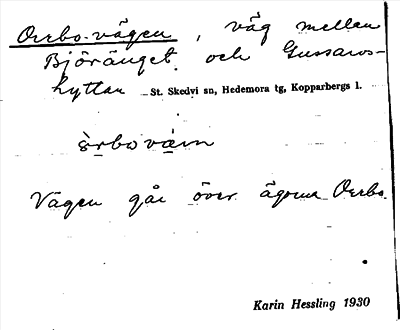 Orrbo-vägen, väg mellan
Björänget och Gussars-
hyttan St. Skedvi sn, Hedemora tg, Kopparbergs l.
Vägen går över ägorna Orrbo.
Karin Hessling 1930